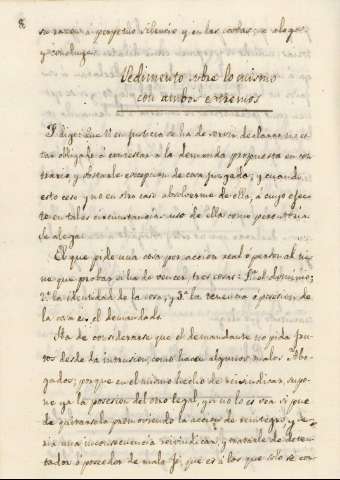 su razon, á perpetuo silencio y en las costas; se alegue
y concluye.
Pedimento sobre lo mismo
con ambos estremos
F. digo: Que V. en justicia se ha de servir declarar no es-
tar obligado á contestar á la demanda propuesta en con-
trario y obstarle escepcion de cosa juzgada; y cuando
esto cese y no en otro caso absolverme de ella, á cuyo efec-
to en tales circunstancias uso de ella como perentoria
de alegar
El que pide una cosa por accion real ó personal tie-
ne que probar si ha de vencer, tres cosas: 1.ª el dominio;
2.ª la identidad de la cosa; y 3.ª la tenencia ó posesion de
la cosa en el demandado.
Ha de considerarse que el demandante no pida fru-
tos desde la intrusion, como hacen algunos malos Abo-
gados; porque en el mismo hecho de reivindicar, supo-
ne ya la posesion del otro legal, y si no lo es
de quitarsela promoviendo la accion de reintegro y se-
ria una inconsecuencia reivindicar, y tratarle de deten-
tador ó poseedor de mala fé, que es á los que solo se con-